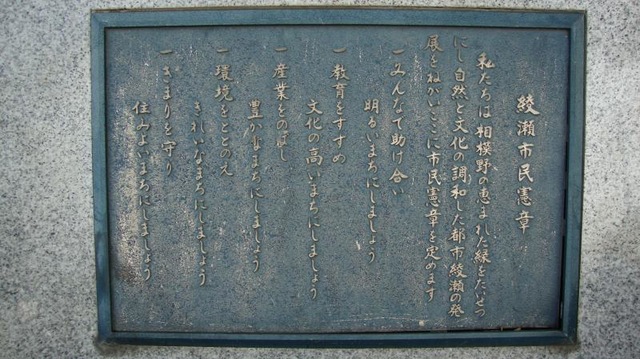 綾瀬市民憲章
私たちは相模野の恵まれた緑をたいせつ
にし自然と文化の調和した都市綾瀬の発
展をねがいここに市民憲章を定めます
一みんなで助け合い
明るいまちにしましょう
一教育をすすめ
文化の高いまちにしましょう
一産業をのばし
豊かなまちにしましょう
一環境をととのえ
きれいなまちにしましょう
一きまりを守り
住みよいまちにしましょう